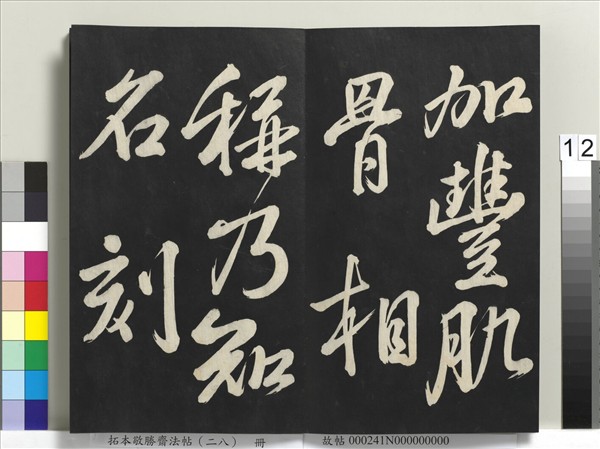 加豐肌
骨相
稱乃知
名刻
12
拓本敬勝齋法帖(二八) 冊 故帖000241N000000000